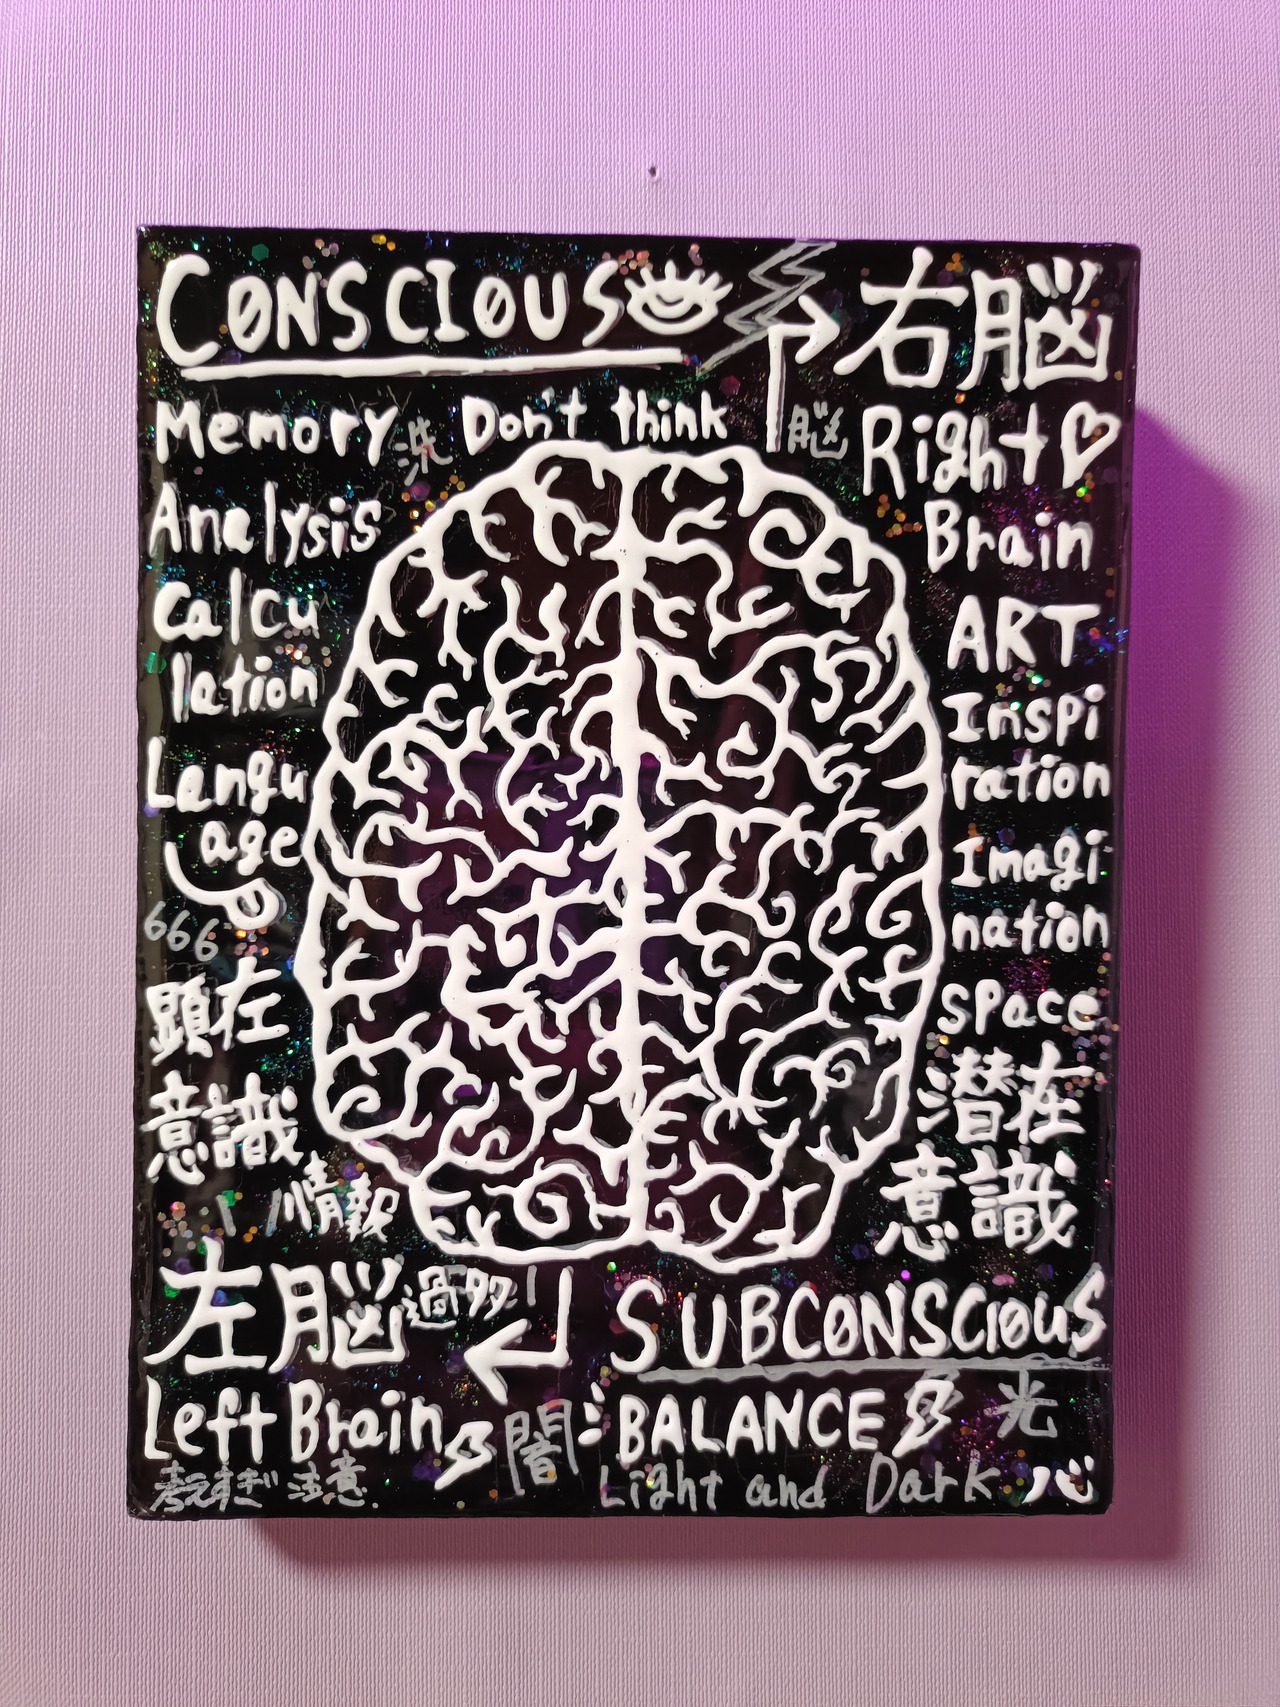 CONSCIOUS
右脳
Memory
洗
Don't think
脳
Right
Brain
Analysis
Calcu
lation
Langu
age
666
ART
Inspi
ration
Imagi
nation
space
顕在
意識
潜在
意識
情報
過多
左脳
Left Brain
考えすぎ 注意
SUBCONSCIOUS
闇
BALANCE
光
Light and Dark
心